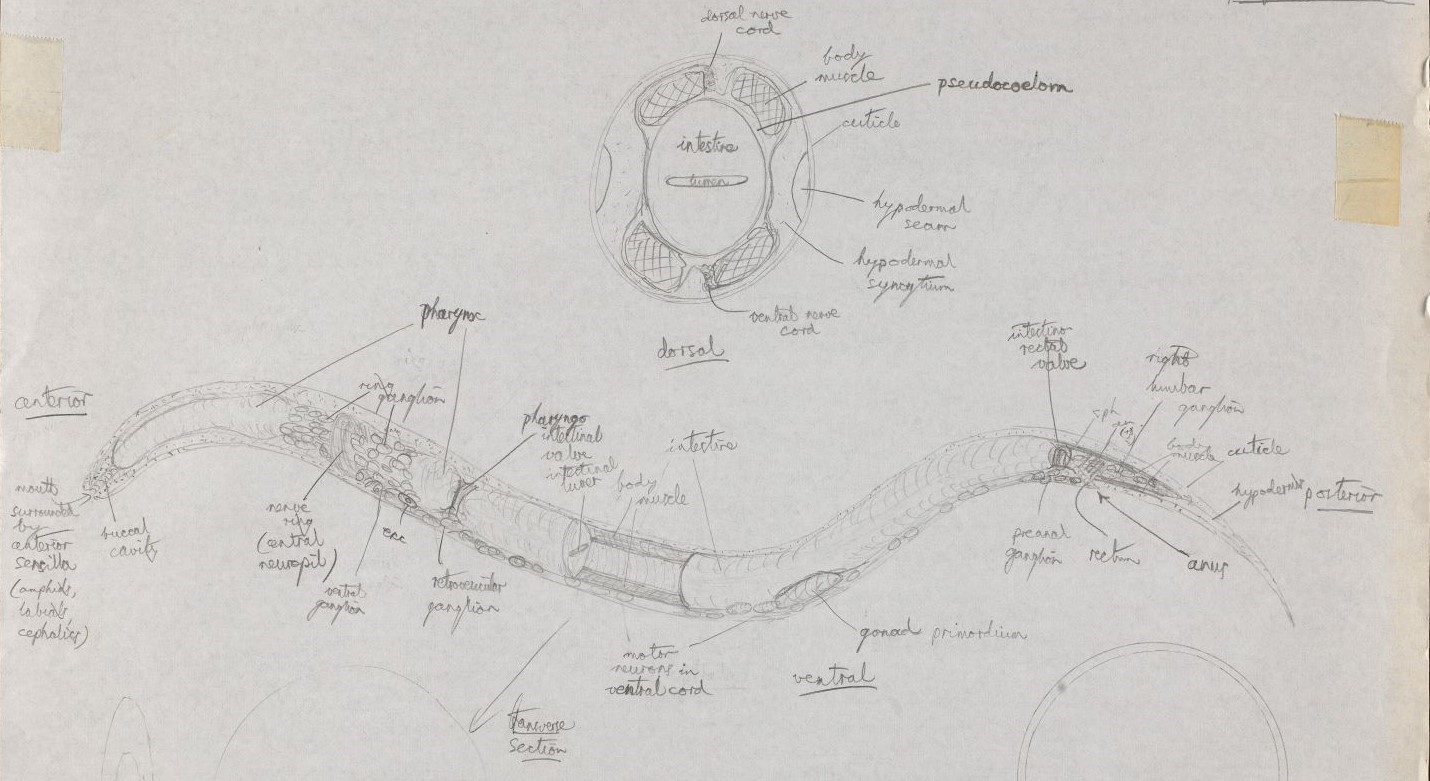 dorsal nerve
cord
body
muscle
pseudocoelom
cuticle
intestine
lumen
hypodermal
seam
hypodermal
syncytium
ventral nerve
cord
dorsal
pharynx
anterior
ring
ganglion
pharyngo
intestinal
valve
intestinal
lumen
body
muscle
intestine
intestino
rectal
valve
right
lumbar
ganglion
sph
body
muscle
cuticle
hypodermis
posterior
mouth
surrounded
by
anterior
sensilla
(amphids,
labials,
cephalics)
buccal
cavity
nerve
ring
(central
neuropil)
exc
ventral
ganglion
retrovesicular
ganglion
preanal
ganglion
rectum
anus
gonad primordium
motor
neurons in
ventral cord
ventral
transverse
section